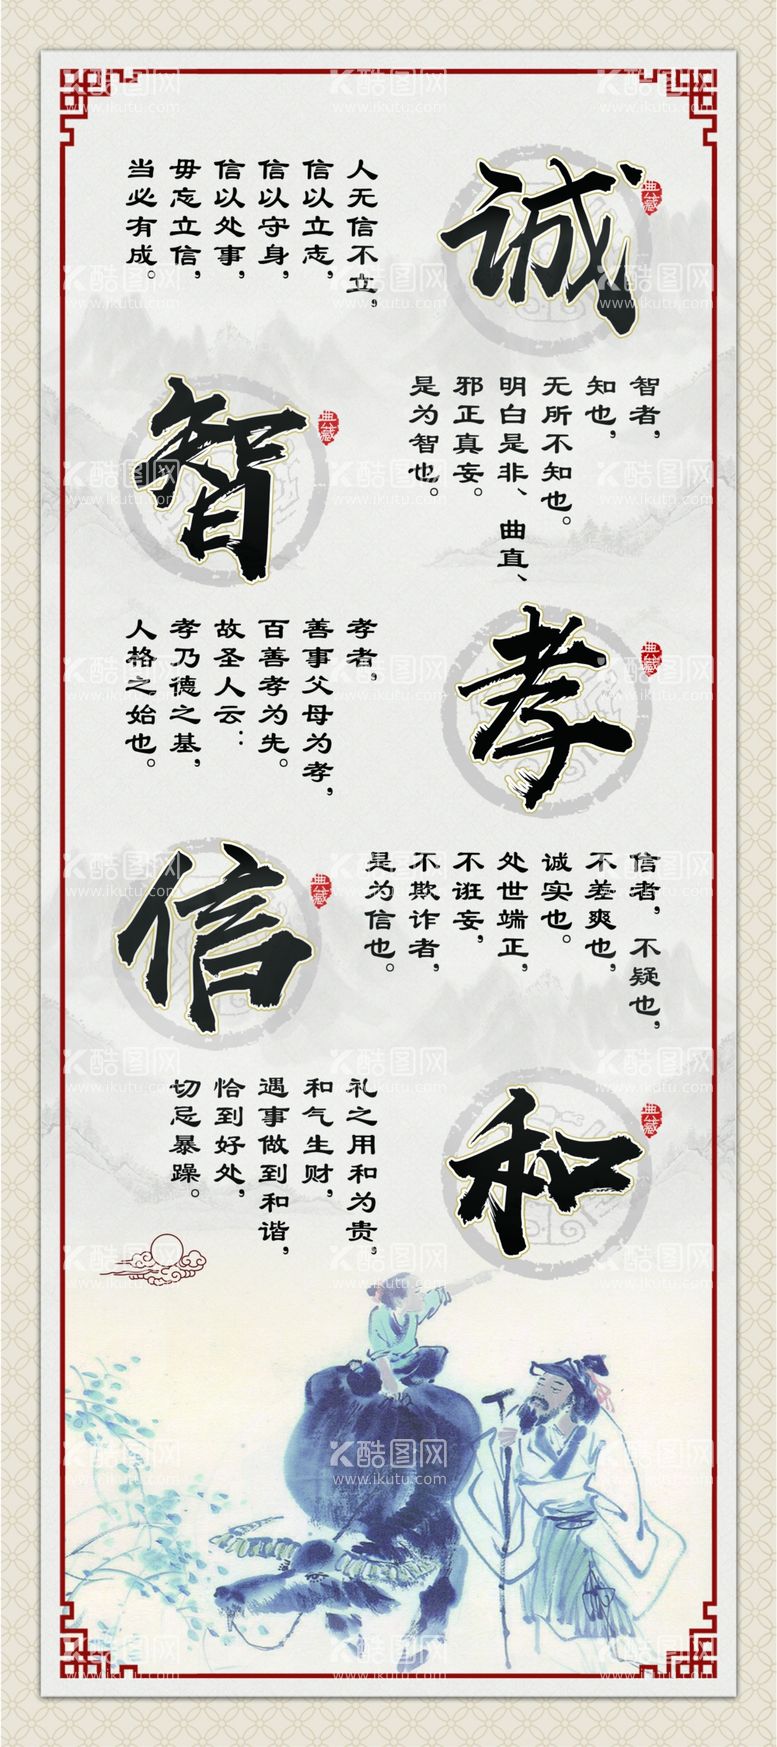 诚
典藏
人无信不立，
信以立志，
信以守身，
信以处事，
毋忘立信，
当必有成。
智
典藏
智者，
知也，
无所不知也。
明白是非、曲直、
邪正真妄。
是为智也。
孝
典藏
孝者，
善事父母为孝，
百善孝为先。
故圣人云：
孝乃德之基，
人格之始也。
信
典藏
信者，不疑也，
不差爽也，
诚实也。
处世端正，
不诳妄，
不欺诈者，
是为信也。
和
典藏
礼之用和为贵，
和气生财，
遇事做到和谐，
恰到好处，
切忌暴躁。
酷图网
www.ikutu.com